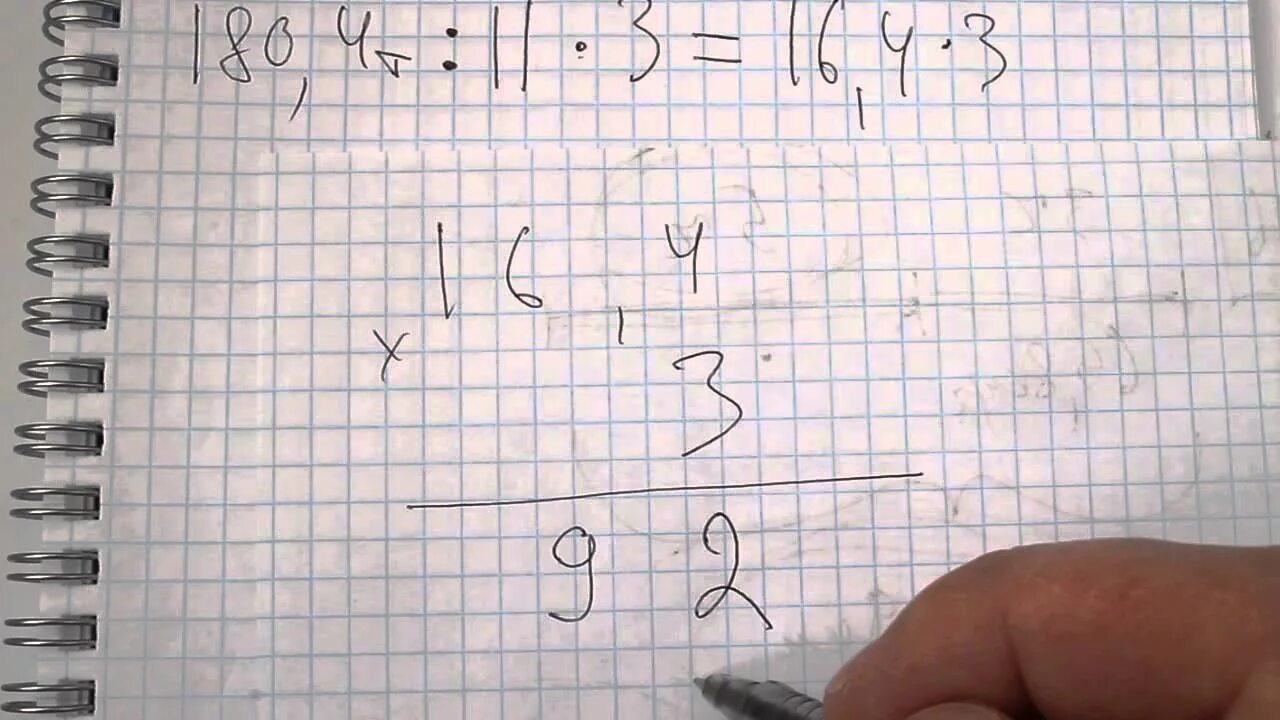 180,4 : 11 · 3 = 16,4 · 3
16,4
x
3
92